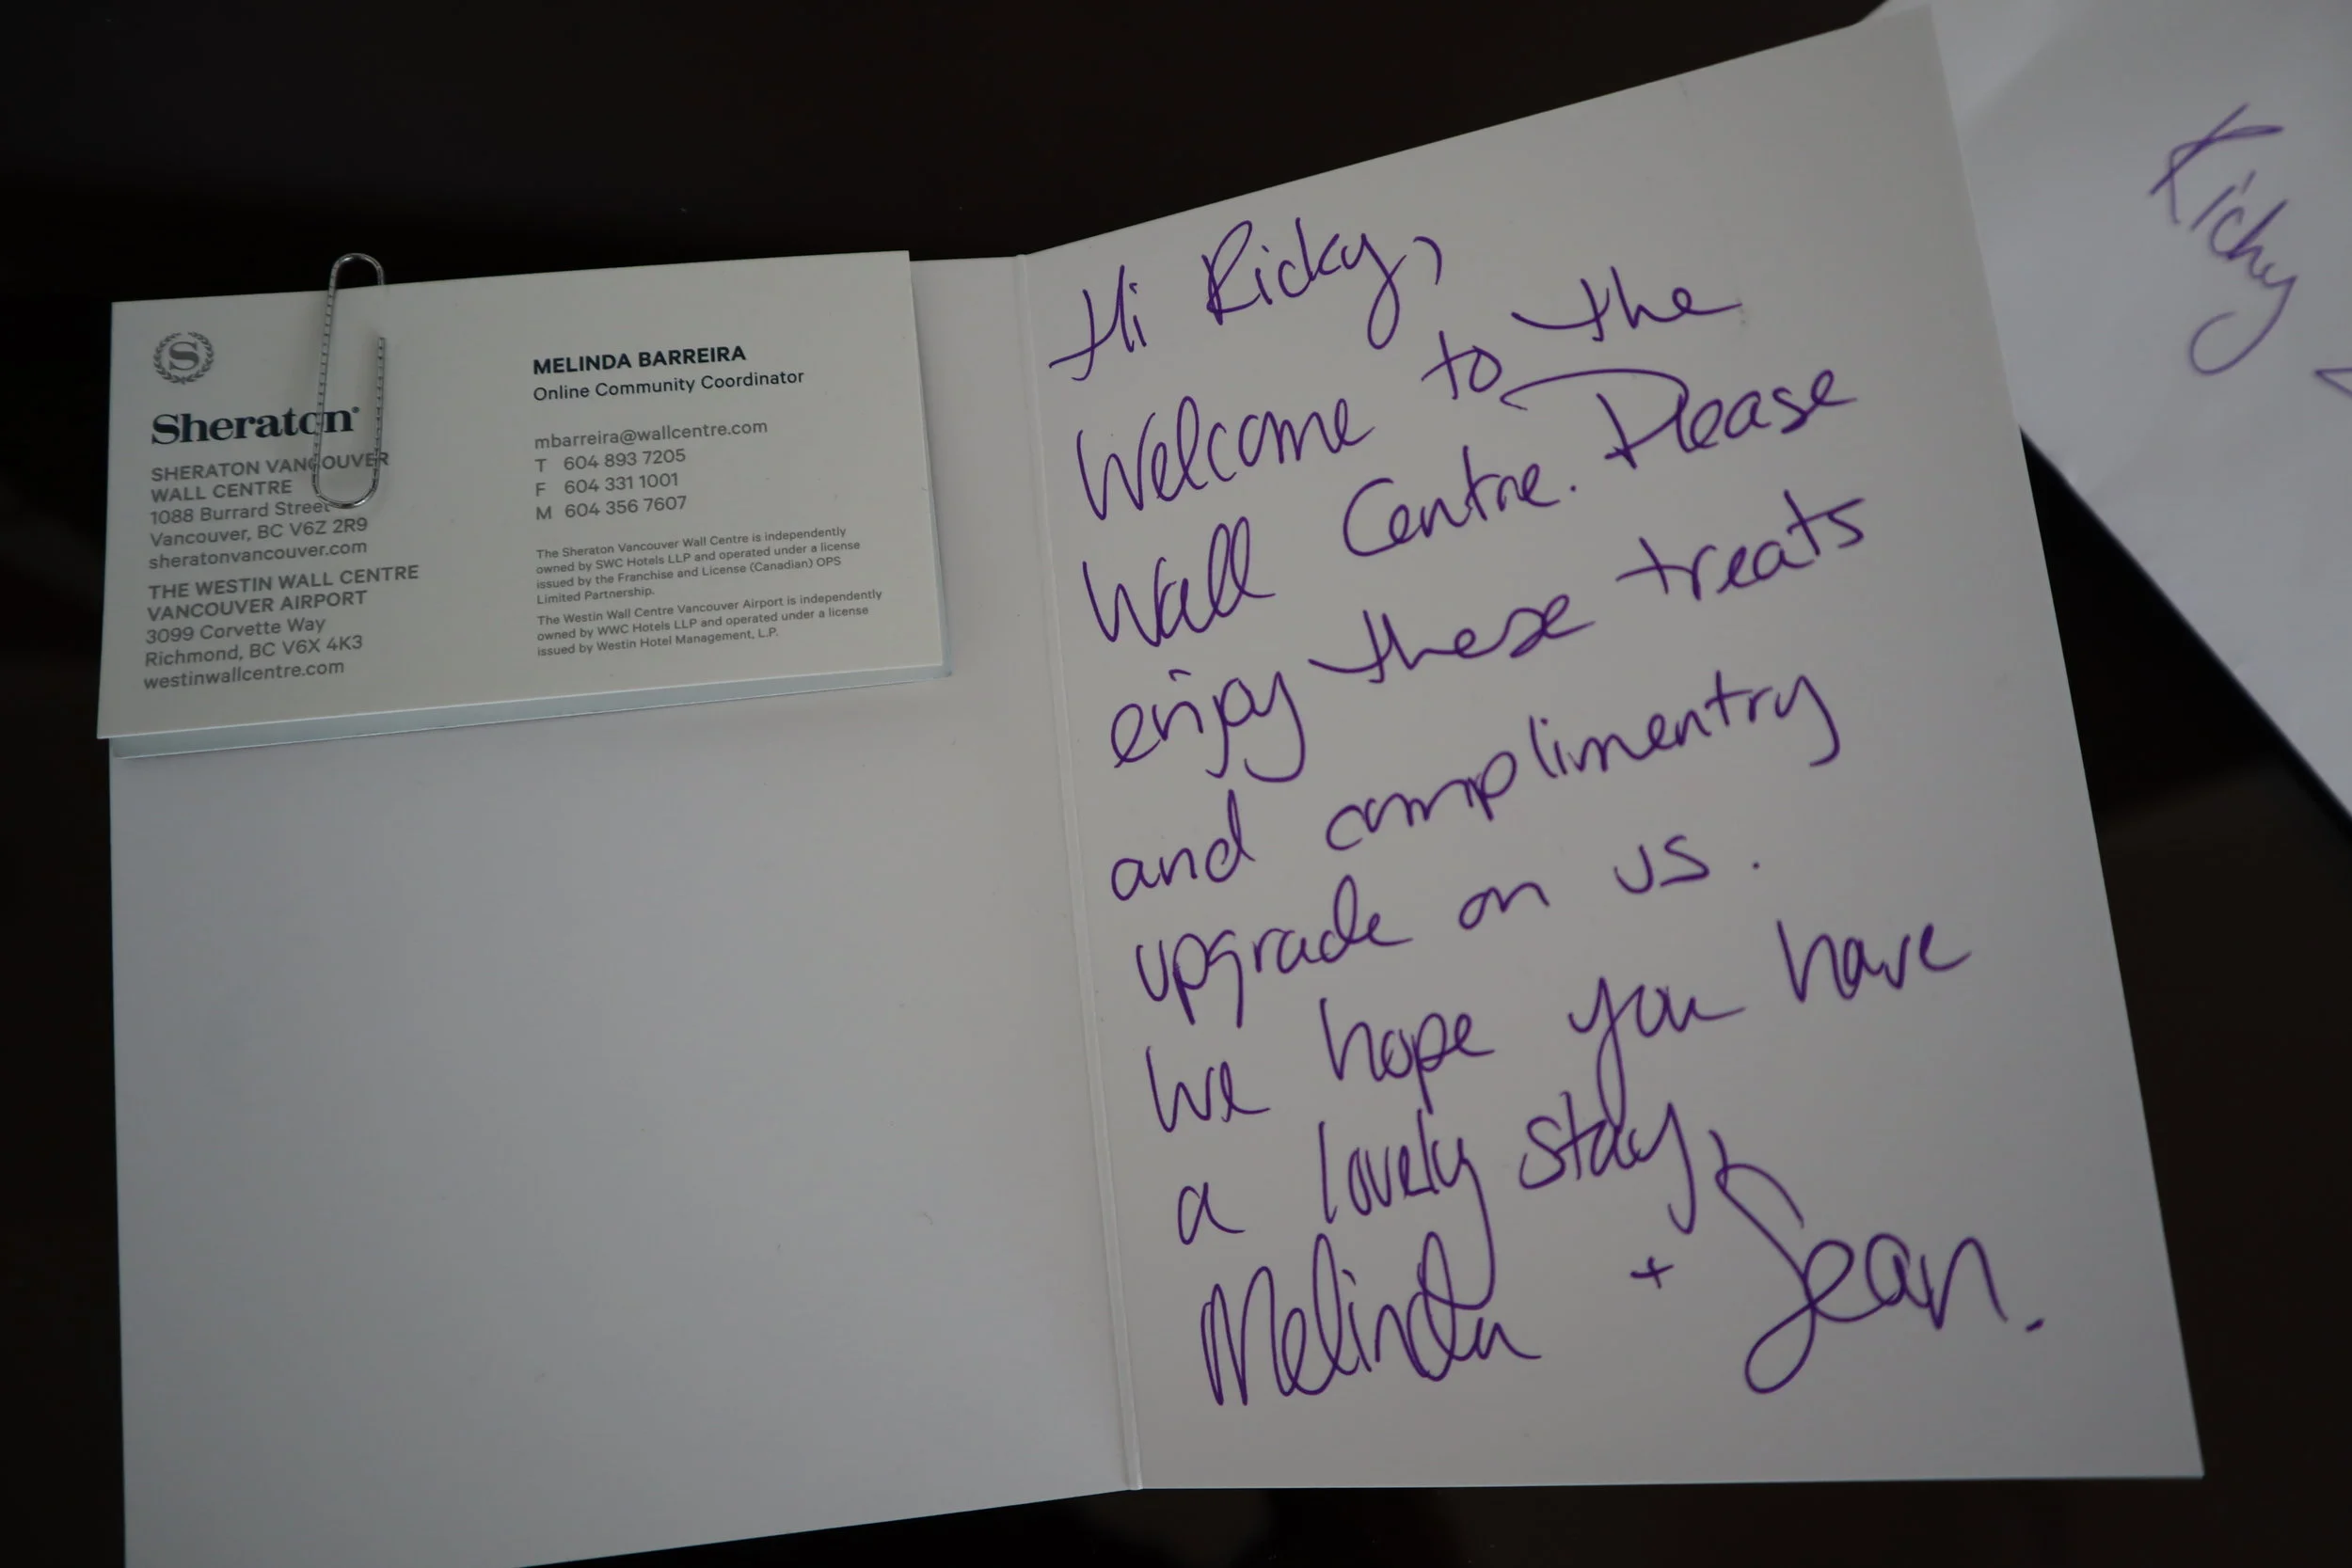 S
Sheraton
SHERATON VANCOUVER
WALL CENTRE
1088 Burrard Street
Vancouver, BC V6Z 2R9
sheratonvancouver.com
THE WESTIN WALL CENTRE
VANCOUVER AIRPORT
3099 Corvette Way
Richmond, BC V6X 4K3
westinwallcentre.com
MELINDA BARREIRA
Online Community Coordinator
mbarreira@wallcentre.com
T 604 893 7205
F 604 331 1001
M 604 356 7607
The Sheraton Vancouver Wall Centre is independently
owned by SWC Hotels LLP and operated under a license
issued by the Franchise and License (Canadian) OPS
Limited Partnership.
The Westin Wall Centre Vancouver Airport is independently
owned by WWC Hotels LLP and operated under a license
issued by Westin Hotel Management, L.P.
Hi Ricky,
Welcome to the
Wall Centre. Please
enjoy these treats
and complimentry
upgrade on us.
We hope you have
a lovely stay,
Melinda + Sean.
Ricky